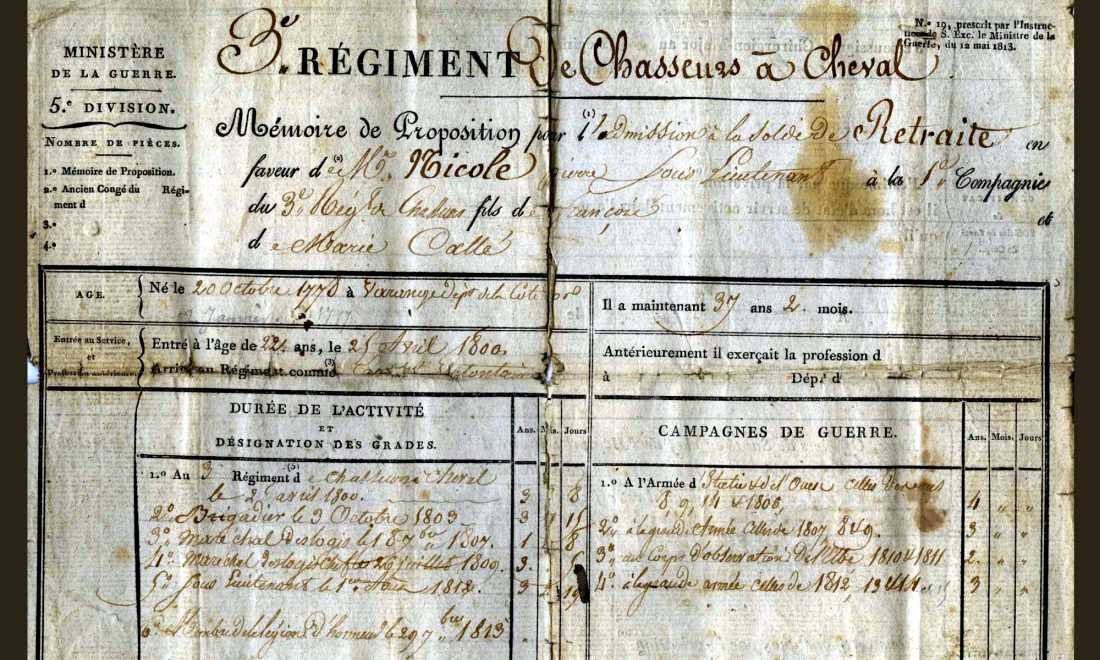 3.e RÉGIMENT De Chasseurs à Cheval
N.º 19, prescrit par l'Instruc-
de S. Exc. le Ministre de la
Guerre, du 12 mai 1813.
MINISTÈRE
DE LA GUERRE.
5.e DIVISION.
NOMBRE DE PIÈCES.
1.º Mémoire de Proposition.
2.º Ancien Congé du Régi-
ment d
3.º
4.º
Mémoire de Proposition pour (1) l'admission à la solde de Retraite en
faveur de (2) Mr. Nicole pierre Sous Lieutenant à la 1.e Compagnie
du 3.e Reg.t de Chasseurs fils de françois et
de Marie Callé
AGE.
Né le 20 Octobre 1778 à dép.t de la Côte d'or
Il a maintenant 37 ans 2 mois.
Entrée au Service,
et
Profession antérieure.
Entré à l'âge de 22 ans, le 25 Avril 1800.
Arrivé au Régiment comme (3)
Antérieurement il exerçait la profession d
à Dép.t d
DURÉE DE L'ACTIVITÉ
ET
DÉSIGNATION DES GRADES.
Ans. Mis. Jours
CAMPAGNES DE GUERRE.
Ans. Mois. Jours
1.º Au 3 Régiment (5) de chasseurs à cheval
le 25 avril 1800. 3 8
2º Brigadier le 3 Octobre 1803 3 15
3º maréchal deslogis le 18 1807. 1 8
4º Maréchal deslogis chef le 26 juillet 1809. 3. 6
5º Sous Lieutenant le 1er 1812. 3 2 19
6º Membre de la légion d'honneur le 29 7bre 1813
1.º A l'Armée d'Italie & de l'Ouest celles des ans
8, 9, 14 & 1806, 4 " "
2º à la grande Armée celles de 1807 8 & 9. 3 " "
3º au Corps d'observation de l'Elbe 1810 & 1811 2. " "
4º à la grande armée celles de 1812, 13 & 14. 3 " "